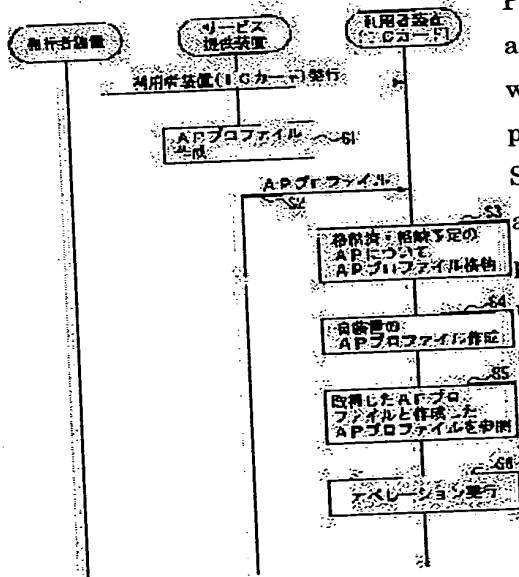 発行者装置
サービス
提供装置
利用者装置
(ICカード)
利用者装置(ICカード)発行
APプロファイル
作成
S1
APプロファイル
S2
S3
格納済・格納予定の
APについて
APプロファイル
S4
自装置の
APプロファイル作成
S5
取得したAPプロ
ファイルと作成した
APプロファイルを
S6
オペレーション実行
a
w
p
S
a